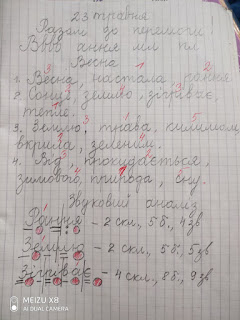 23 травня
Разом до перемоги
Весна
1. Весна, настала, рання
2. Сонце, землю, зігріває,
тепле.
3. Землю, трава, килимом
вкрила, зеленим.
4. Від, прокидається,
зимового, природа, сну.
Звуковий аналіз
Рання – 2 скл., 5 б., 4 зв
Землю – 2 скл., 5 б., 5 зв
Зігріває – 4 скл., 8 б., 9 зв
MEIZU X8
AI DUAL CAMERA